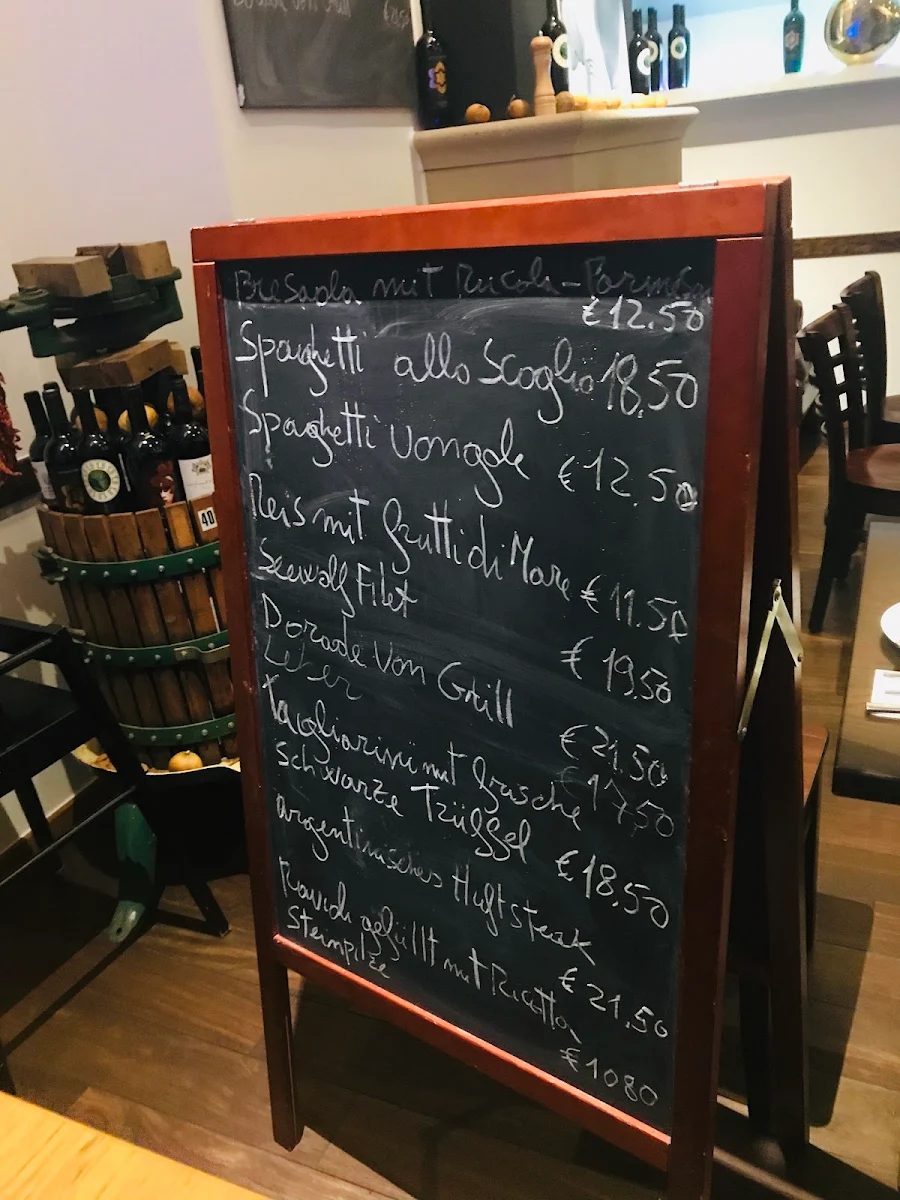 Bresaola mit Rucola-Parmesan
€12.50
Spaghetti allo Scoglio 18,50
Spaghetti Vongole €12.50
Reis mit frutti di Mare €11.50
Seewolf Filet
€19,50
Dorade Von Grill
€21,50
Leber
17,50
Tagliarini mit frische
Schwarze Trüffel
€18.50
argentinisches Huftsteak
€21.50
Ravioli gefüllt mit Ricotta
Steinpilze
€1080
40